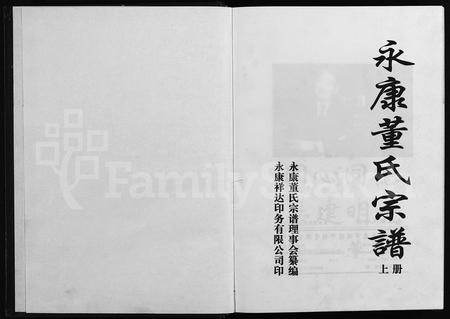 永康董氏宗譜
上册
永康董氏宗谱理事会纂编
永康祥达印务有限公司印
FamilySearch